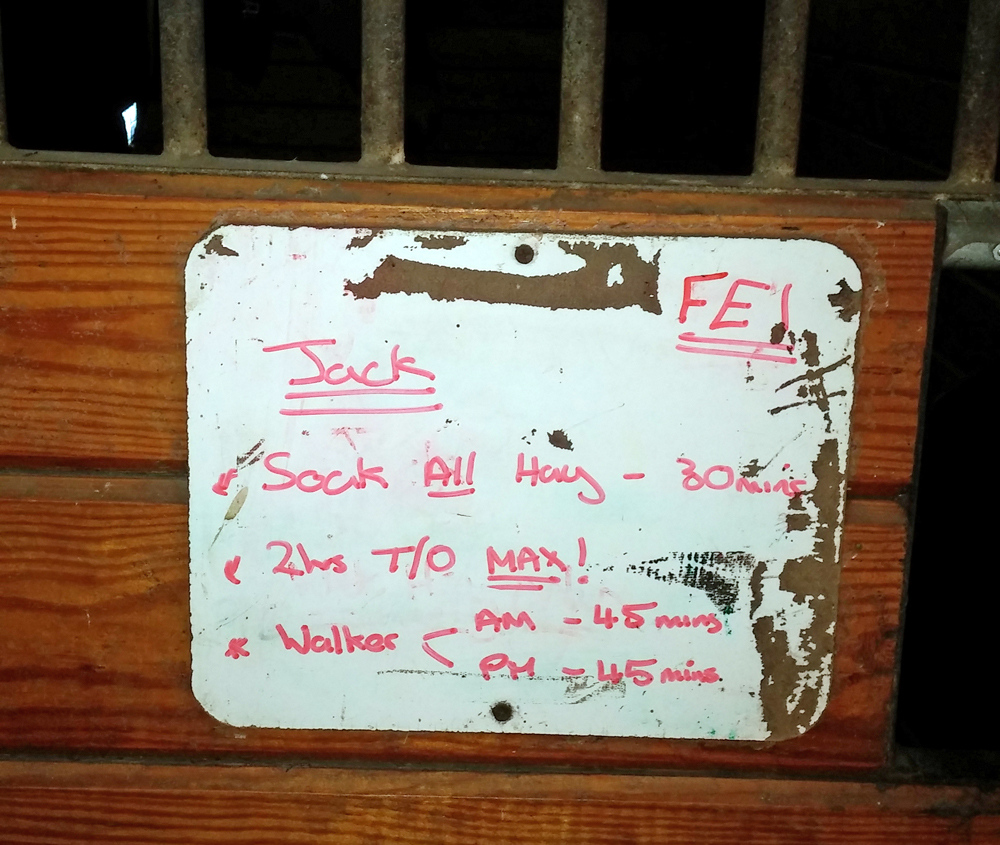 FEI
Jack
* Soak All Hay - 30mins
* 2hrs T/O MAX!
* Walker < AM - 45 mins
PM - 45 mins